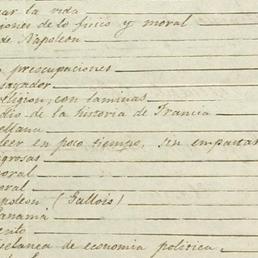 ar la vida
iones de lo fisico y moral
de Napoleon
preocupaciones
sayador
eligion, con laminas
dio de la historia de Francia
ellana
leer en poco tiempo, sin empastar
grosas
oral
oral
poleon (Gallois)
anama
ento
elanea de economia politica